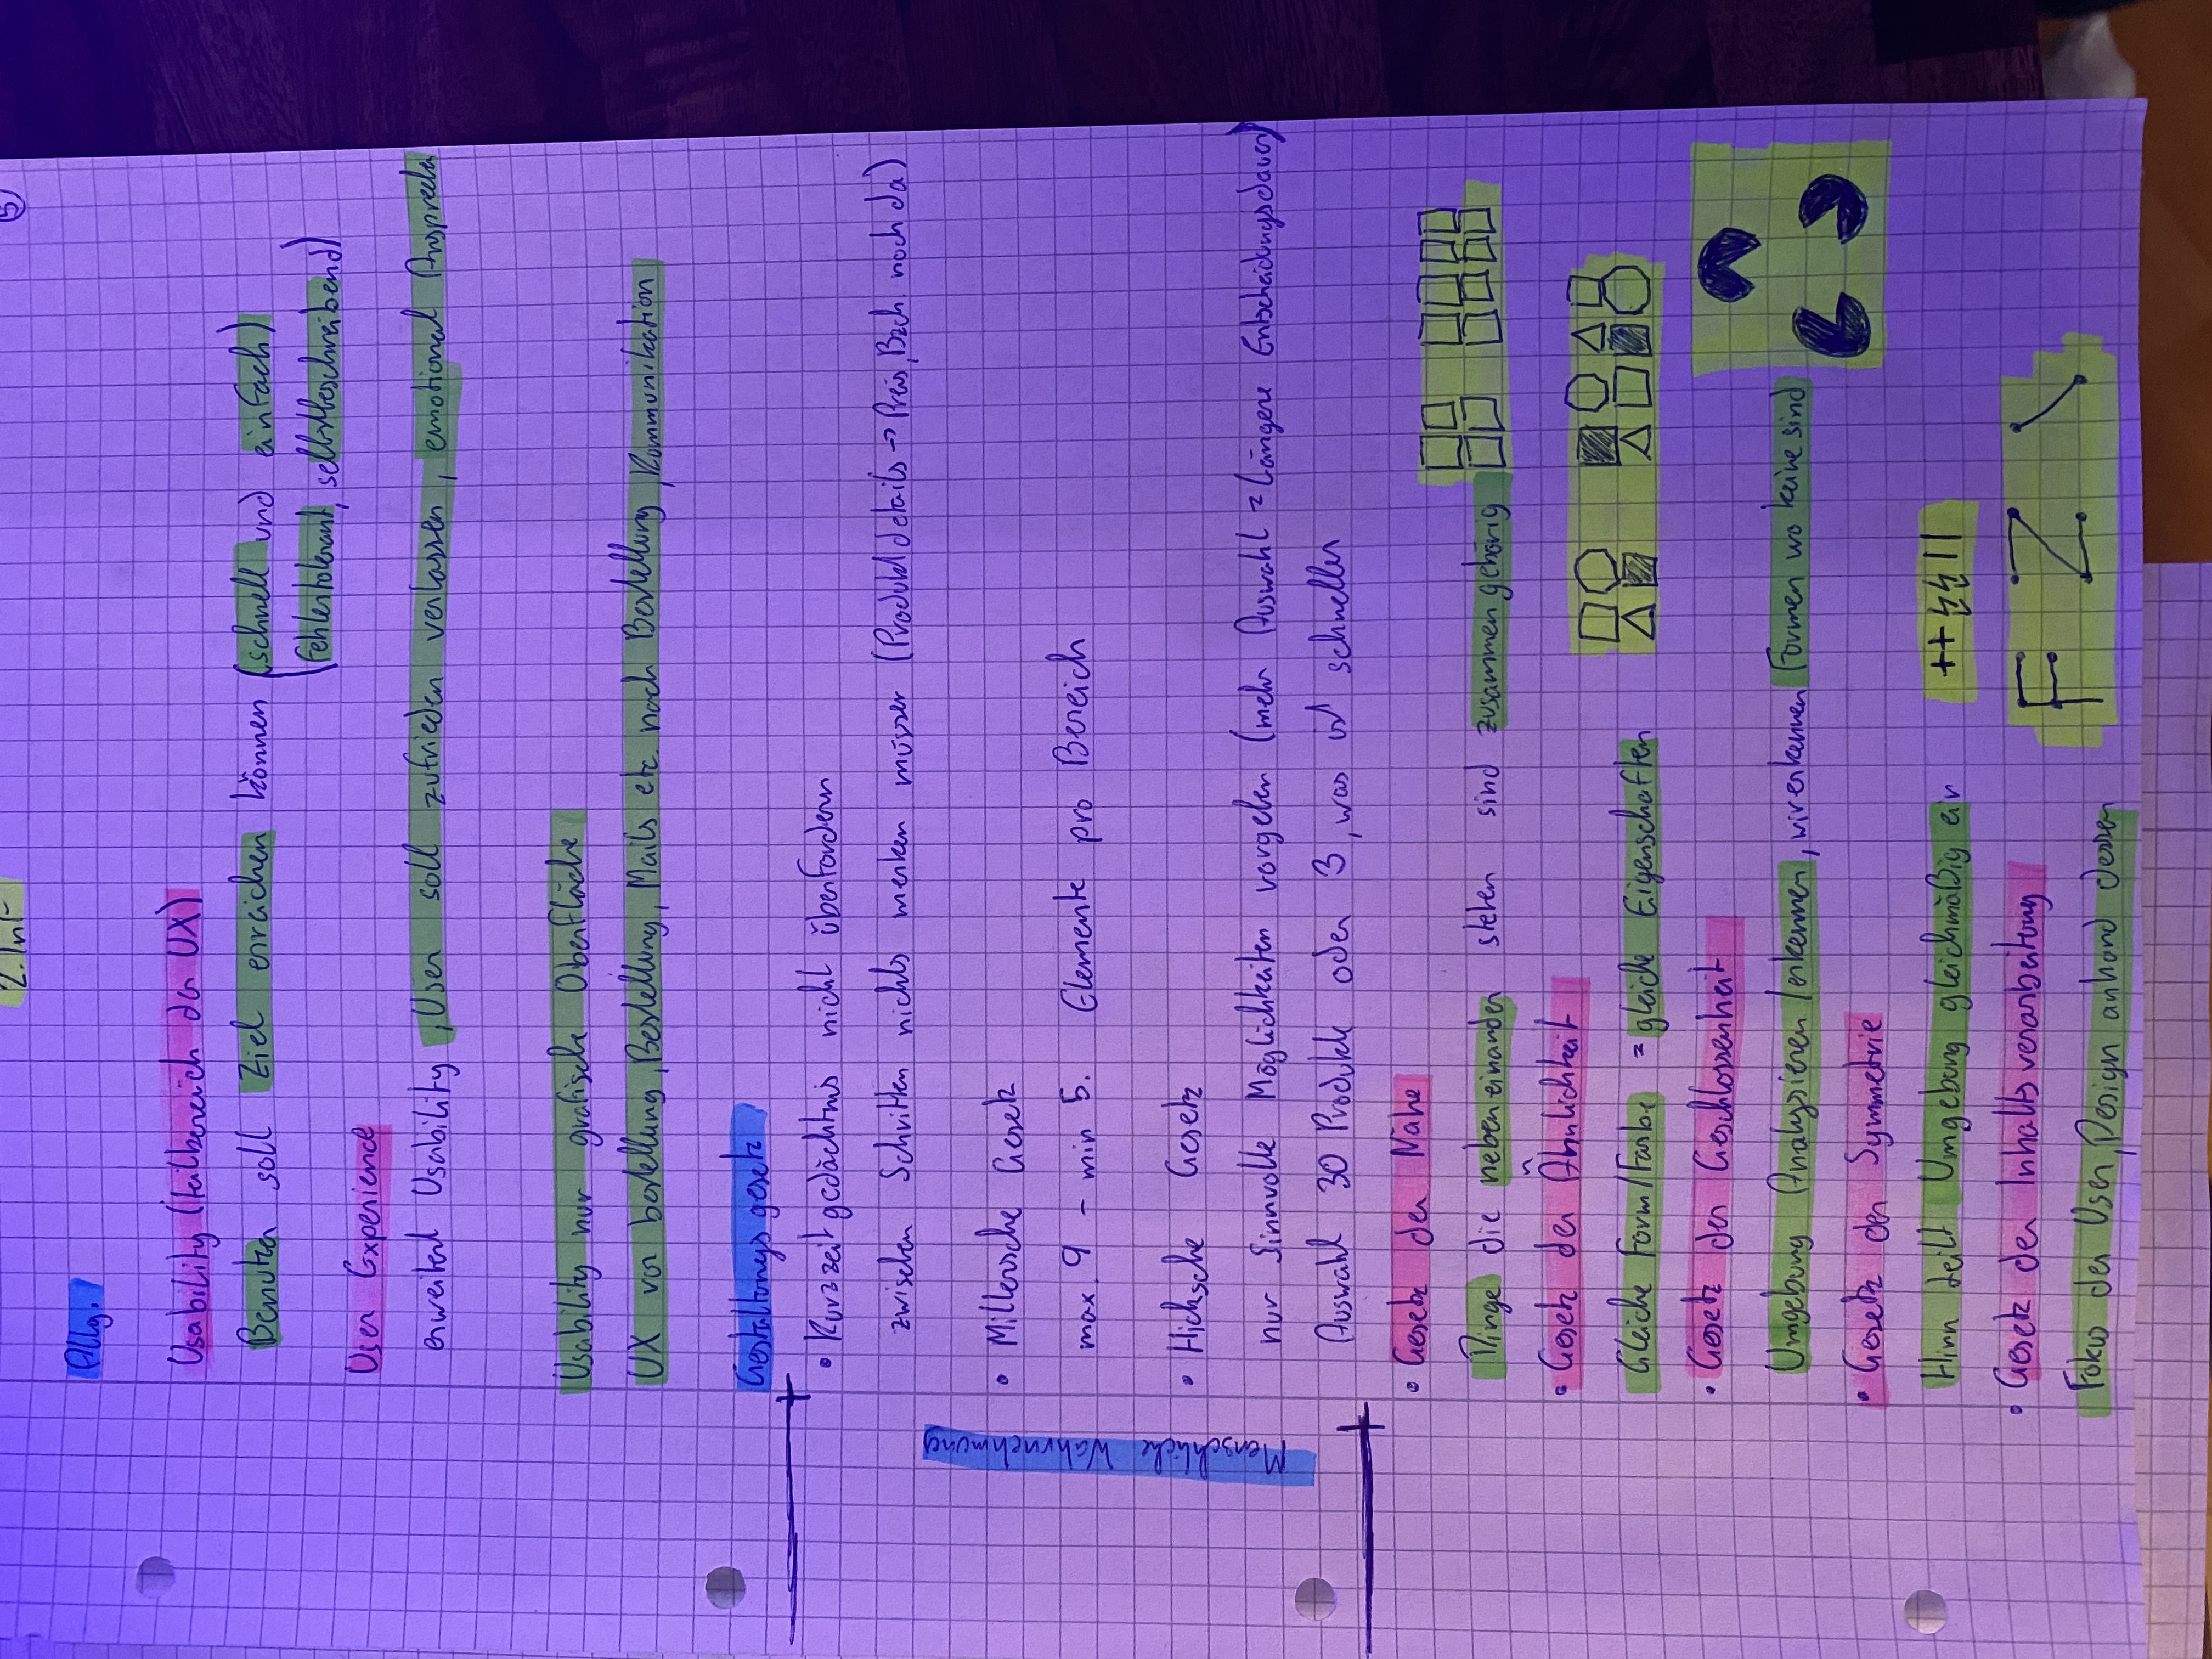 2. Inf
5
Allg.
Usability (teilbereich der UX)
Benutzer soll Ziel erreichen können (schnell und einfach)
(fehlertolerant, selbstbeschreibend)
User Experience
erweitert Usability, User soll zufrieden verlassen, emotional Ansprechen
Usability nur grafische Oberfläche
UX vor bestellung, Bestellung, Mails etc. nach Bestellung, Kommunikation
Gestaltungsgesetz
• Kurzzeitgedächtnis nicht überfordern
zwischen Schritten nichts merken müssen (Produktdetails → Preis, Bzch. noch da)
Menschliche Wahrnehmung
• Millersche Gesetz
max. 9 - min 5. Elemente pro Bereich
• Hicksche Gesetz
nur Sinnvolle Möglichkeiten vorgeben (mehr Auswahl = Längere Entscheidungsdauer)
Auswahl 30 Produkte oder 3, was ist schneller
• Gesetz der Nähe
Dinge die nebeneinander stehen sind zusammengehörig
• Gesetz der Ähnlichkeit
Gleiche Form/Farbe = gleiche Eigenschaften
• Gesetz der Geschlossenheit
Umgebung Analysieren/erkennen, wir erkennen Formen wo keine sind
• Gesetz der Symmetrie
Hirn teilt Umgebung gleichmäßig ein
• Gesetz der Inhaltsverarbeitung
F Z \
Fokus der User, Design anhand dessen